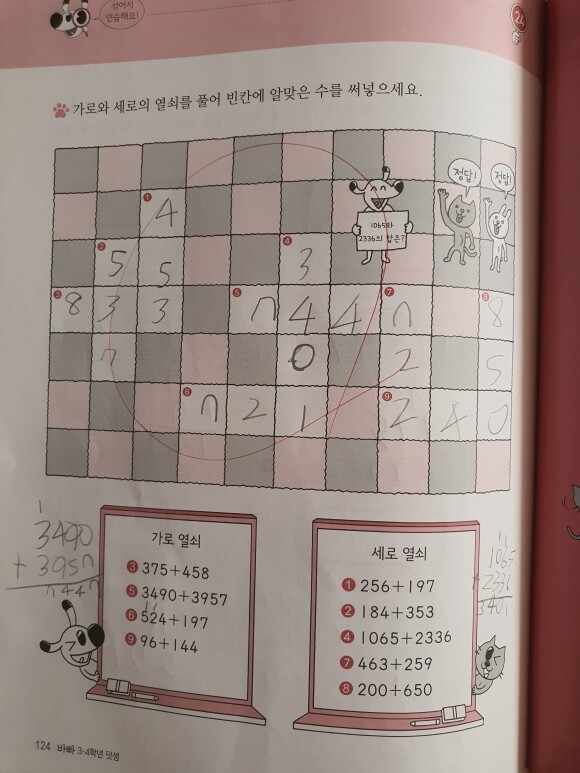 섞어서
연습해요!
24
가로와 세로의 열쇠를 풀어 빈칸에 알맞은 수를 써넣으세요.
정답!
정답!
1065와
2336의 합은?
❶ 4
❷ 5 5 ❹ 3
❸ 8 3 3 ❺ 7 4 4 ❼ 7 ❽ 8
7 0 2 5
❻ 7 2 1 ❾ 2 4 0
가로 열쇠
❸ 375+458
❺ 3490+3957
❻ 524+197
❾ 96+144
세로 열쇠
❶ 256+197
❷ 184+353
❹ 1065+2336
❼ 463+259
❽ 200+650
1
3490
+ 3957
7447
1 1
1065
+ 2336
3401
124 바빠 3·4학년 덧셈